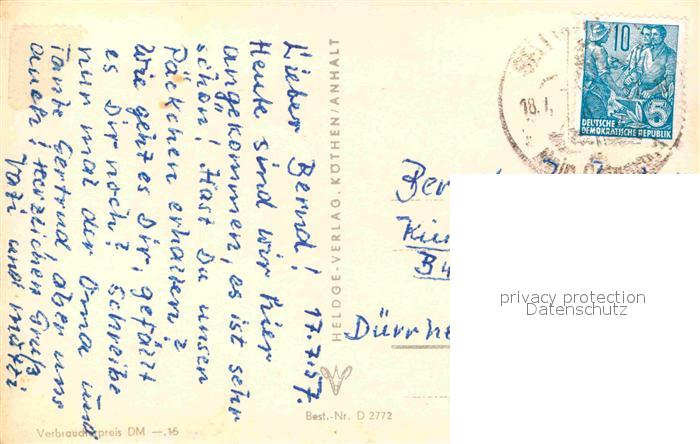 Lieber Bernd! 17.7.57.
Heute sind wir hier
angekommen, es ist sehr
schön! Hast Du unsen
Päckchen erhalten?
Wie geht es Dir, gefällt
es Dir noch? Schreibe
nur mal der Oma und
Tante Gertrud, aber uns
auch! Herzlichen Gruß
Vati und Mutti
HELDGE-VERLAG, KÖTHEN/ANHALT
Best.-Nr. D 2772
Verbraucherpreis DM —.15
10
5
DEUTSCHE
DEMOKRATISCHE REPUBLIK
18.7.
Ber
B
Dürrhe
privacy protection
Datenschutz